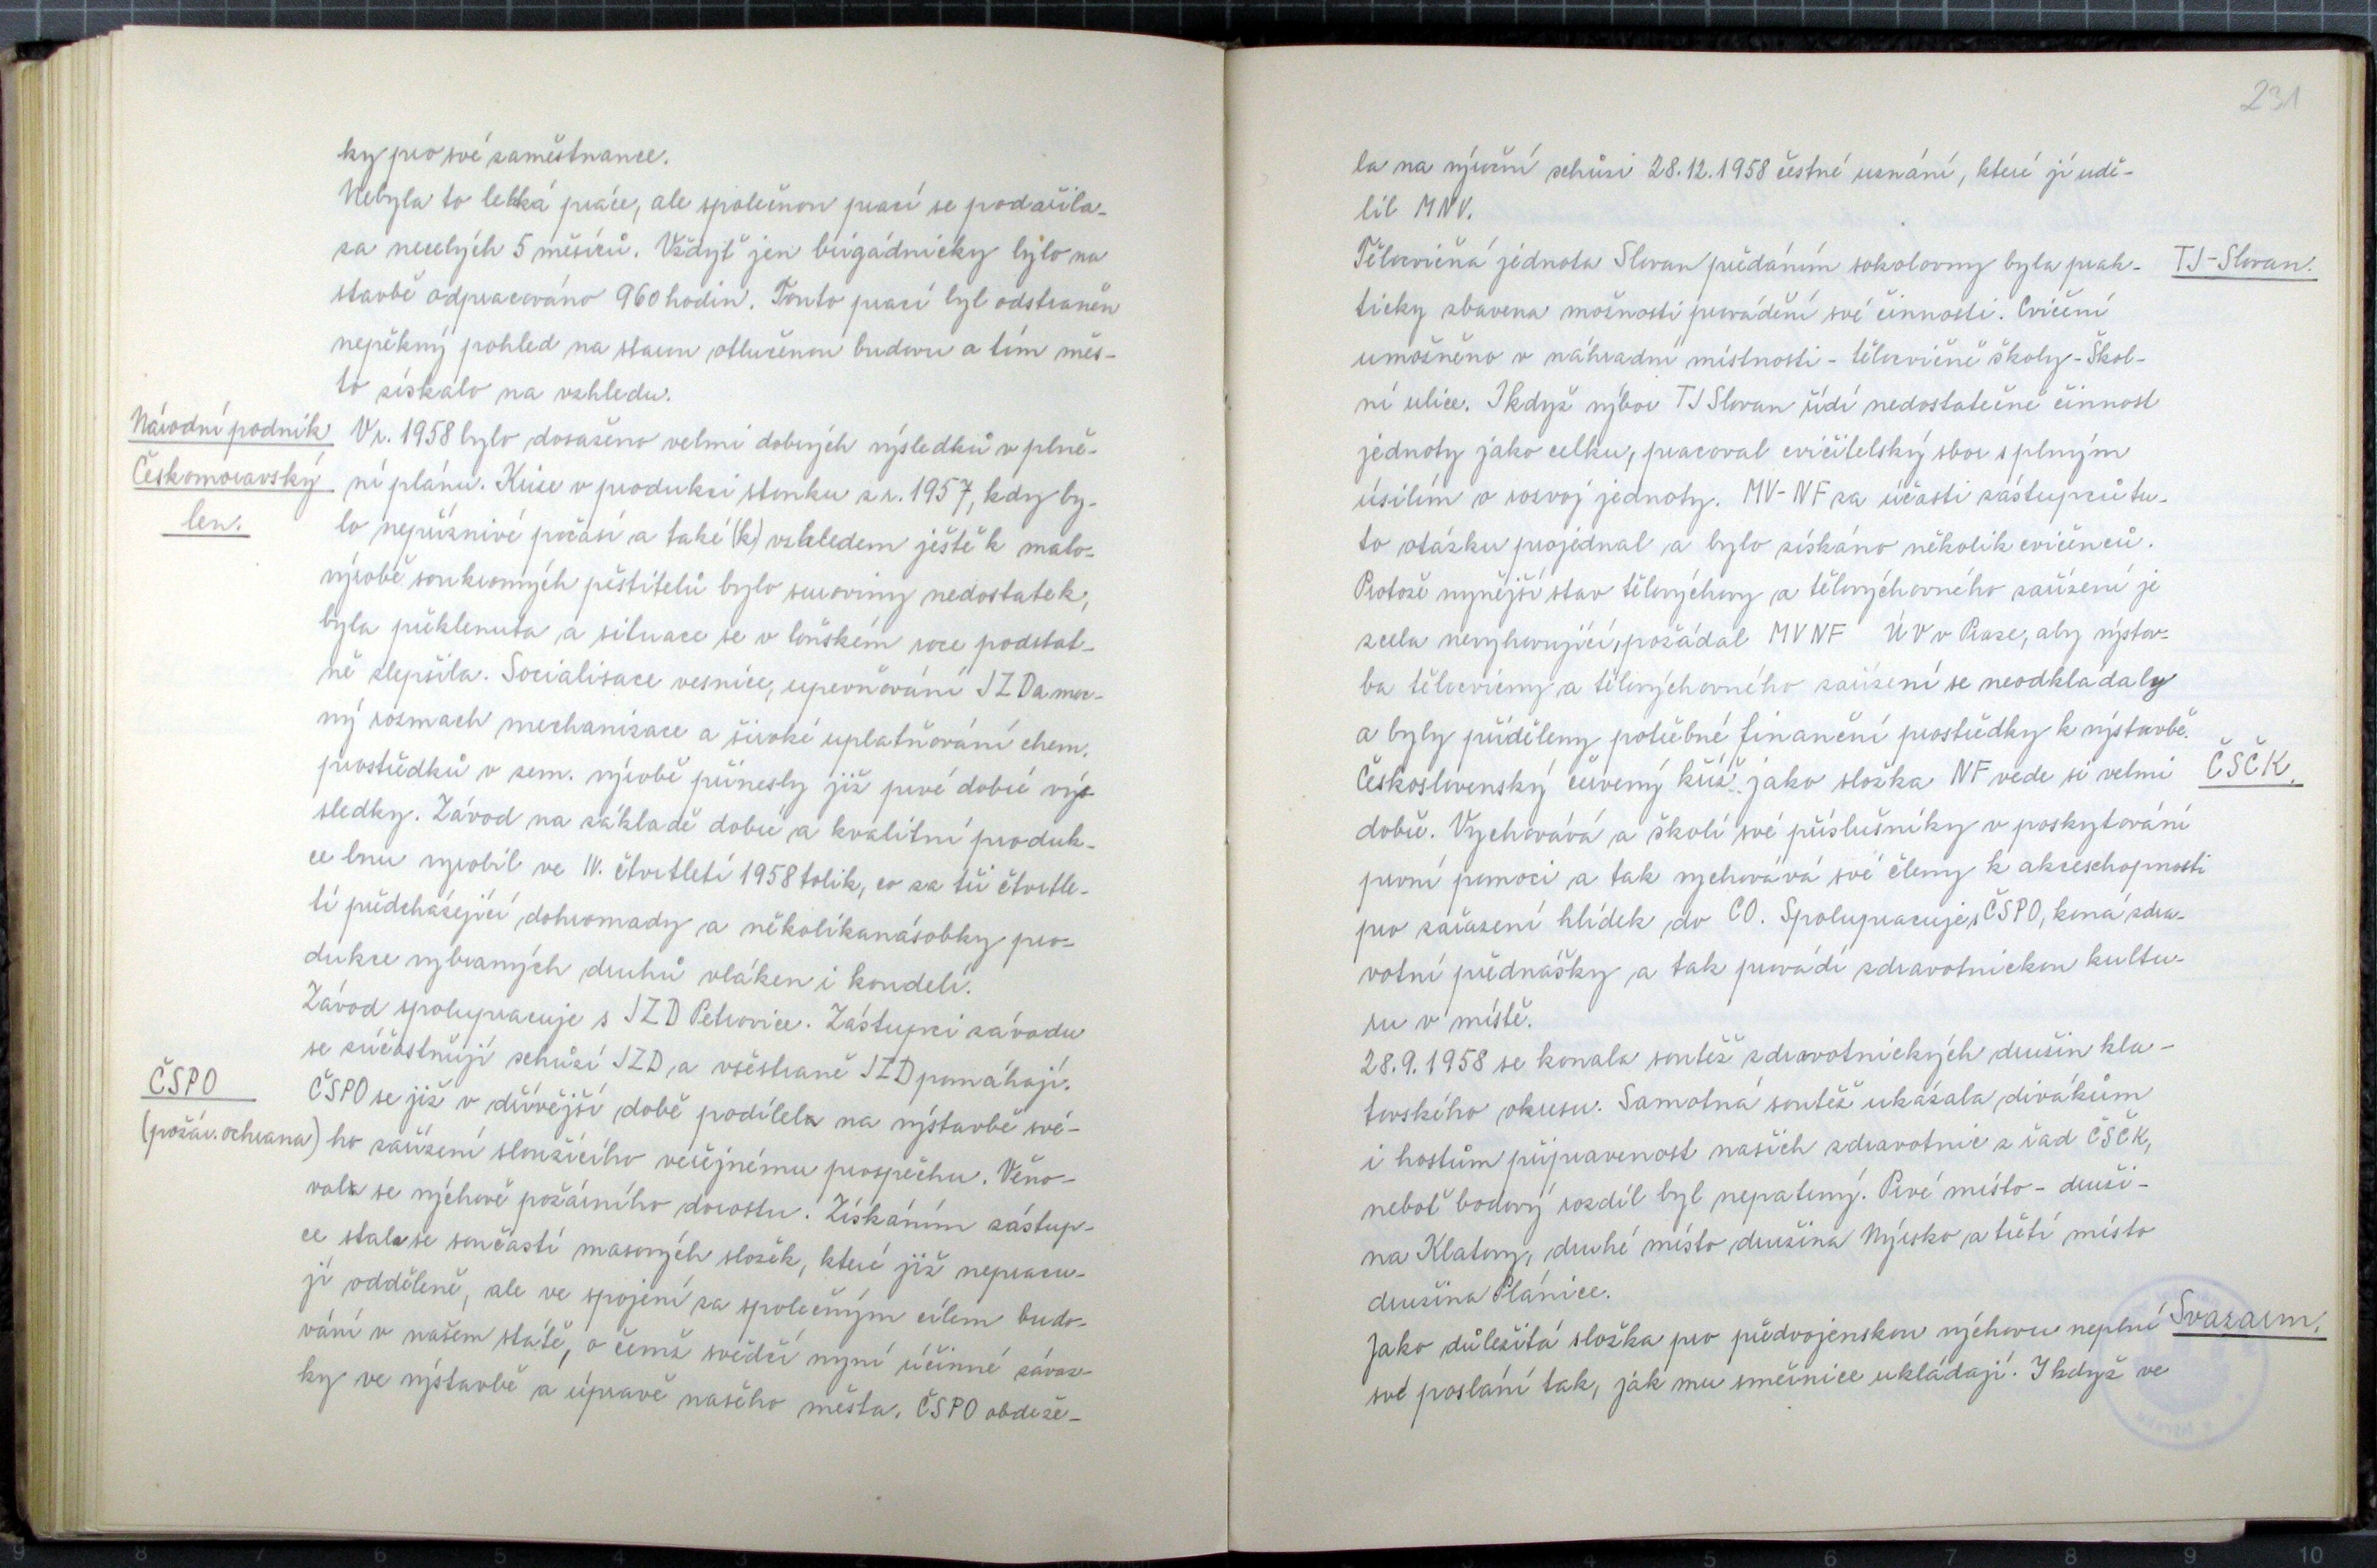 ky pro své zaměstnance.
Nebyla to lehká práce, ale společnou prací se podařila-
za necelých 5 měsíců. Vždyť jen brigádnicky bylo na
stavbě odpracováno 960 hodin. Touto prací byl odstraněn
nepěkný pohled na starou otlučenou budovu a tím měs-
to získalo na vzhledu.
Národní podnik
Českomoravský
len.
V r. 1958 bylo dosaženo velmi dobrých výsledků v plně-
ní plánu. Krise v produkci stonku z r. 1957, kdy by-
lo nepříznivé počasí a také (k) vzhledem ještě k malo-
výrobě soukromých pěstitelů bylo suroviny nedostatek,
byla překlenuta a situace se v loňském roce podstat-
ně zlepšila. Socialisace vesnice, upevňování JZD a moc-
ný rozmach mechanizace a široké uplatňování chem.
prostředků v zem. výrobě přinesly již prvé dobré vý-
sledky. Závod na základě dobré a kvalitní produk-
ce lnu vyrobil ve IV. čtvrtletí 1958 tolik, co za tři čtvrtle-
tí předcházející dohromady a několikanásobky pro-
dukce vybraných druhů vláken i koudelí.
Závod spolupracuje s JZD Petrovice. Zástupci závodu
se zúčastňují schůzí JZD a všestraně JZD pomáhají.
ČSPO
(požár. ochrana)
ČSPO se již v dřívější době podílela na výstavbě své-
ho zařízení sloužícího veřejnému prospěchu. Věno-
vala se výchově požárního dorostu. Získáním zástup-
ce stala se součástí masových složek, které již nepracu-
jí odděleně, ale ve spojení za společným cílem budo-
vání v našem státě, o čemž svědčí nyní účinné závaz-
ky ve výstavbě a úpravě našeho města. ČSPO obdrže-
231
la na výroční schůzi 28.12.1958 čestné uznání, které jí udě-
lil MNV.
TJ-Slovan.
Tělocvičná jednota Slovan předáním sokolovny byla prak-
ticky zbavena možnosti provádění své činnosti. Cvičení
umožněno v náhradní místnosti - tělocvičně školy - Škol-
ní ulice. I když výbor TJ Slovan řídí nedostatečně činnost
jednoty jako celku, pracoval cvičitelský sbor s plným
úsilím o rozvoj jednoty. MV-NF za účasti zástupců tu-
to otázku projednal a bylo získáno několik cvičenců.
Protože nynější stav tělovýchovy a tělovýchovného zařízení je
zcela nevyhovující, požádal MVNF ÚV v Praze, aby výstav-
ba tělocvičny a tělovýchovného zařízení se neodkládaly
a byly přiděleny potřebné finanční prostředky k výstavbě.
ČSČK.
Československý červený kříž jako složka NF vede si velmi
dobře. Vychovává a školí své příslušníky v poskytování
první pomoci a tak vychovává své členy k akceschopnosti
pro zařazení hlídek do CO. Spolupracuje s ČSPO, koná zdra-
votní přednášky a tak provádí zdravotnickou kultu-
ru v místě.
28.9.1958 se konala soutěž zdravotnických družin kla-
tovského okresu. Samotná soutěž ukázala divákům
i hostům připravenost našich zdravotnic z řad ČSČK,
neboť bodový rozdíl byl nepatrný. Prvé místo - druži-
na Klatovy, druhé místo družina Nýrsko a třetí místo
družina Plánice.
Svazarm.
Jako důležitá složka pro předvojenskou výchovu neplní
své poslání tak, jak mu směrnice ukládají. I když ve